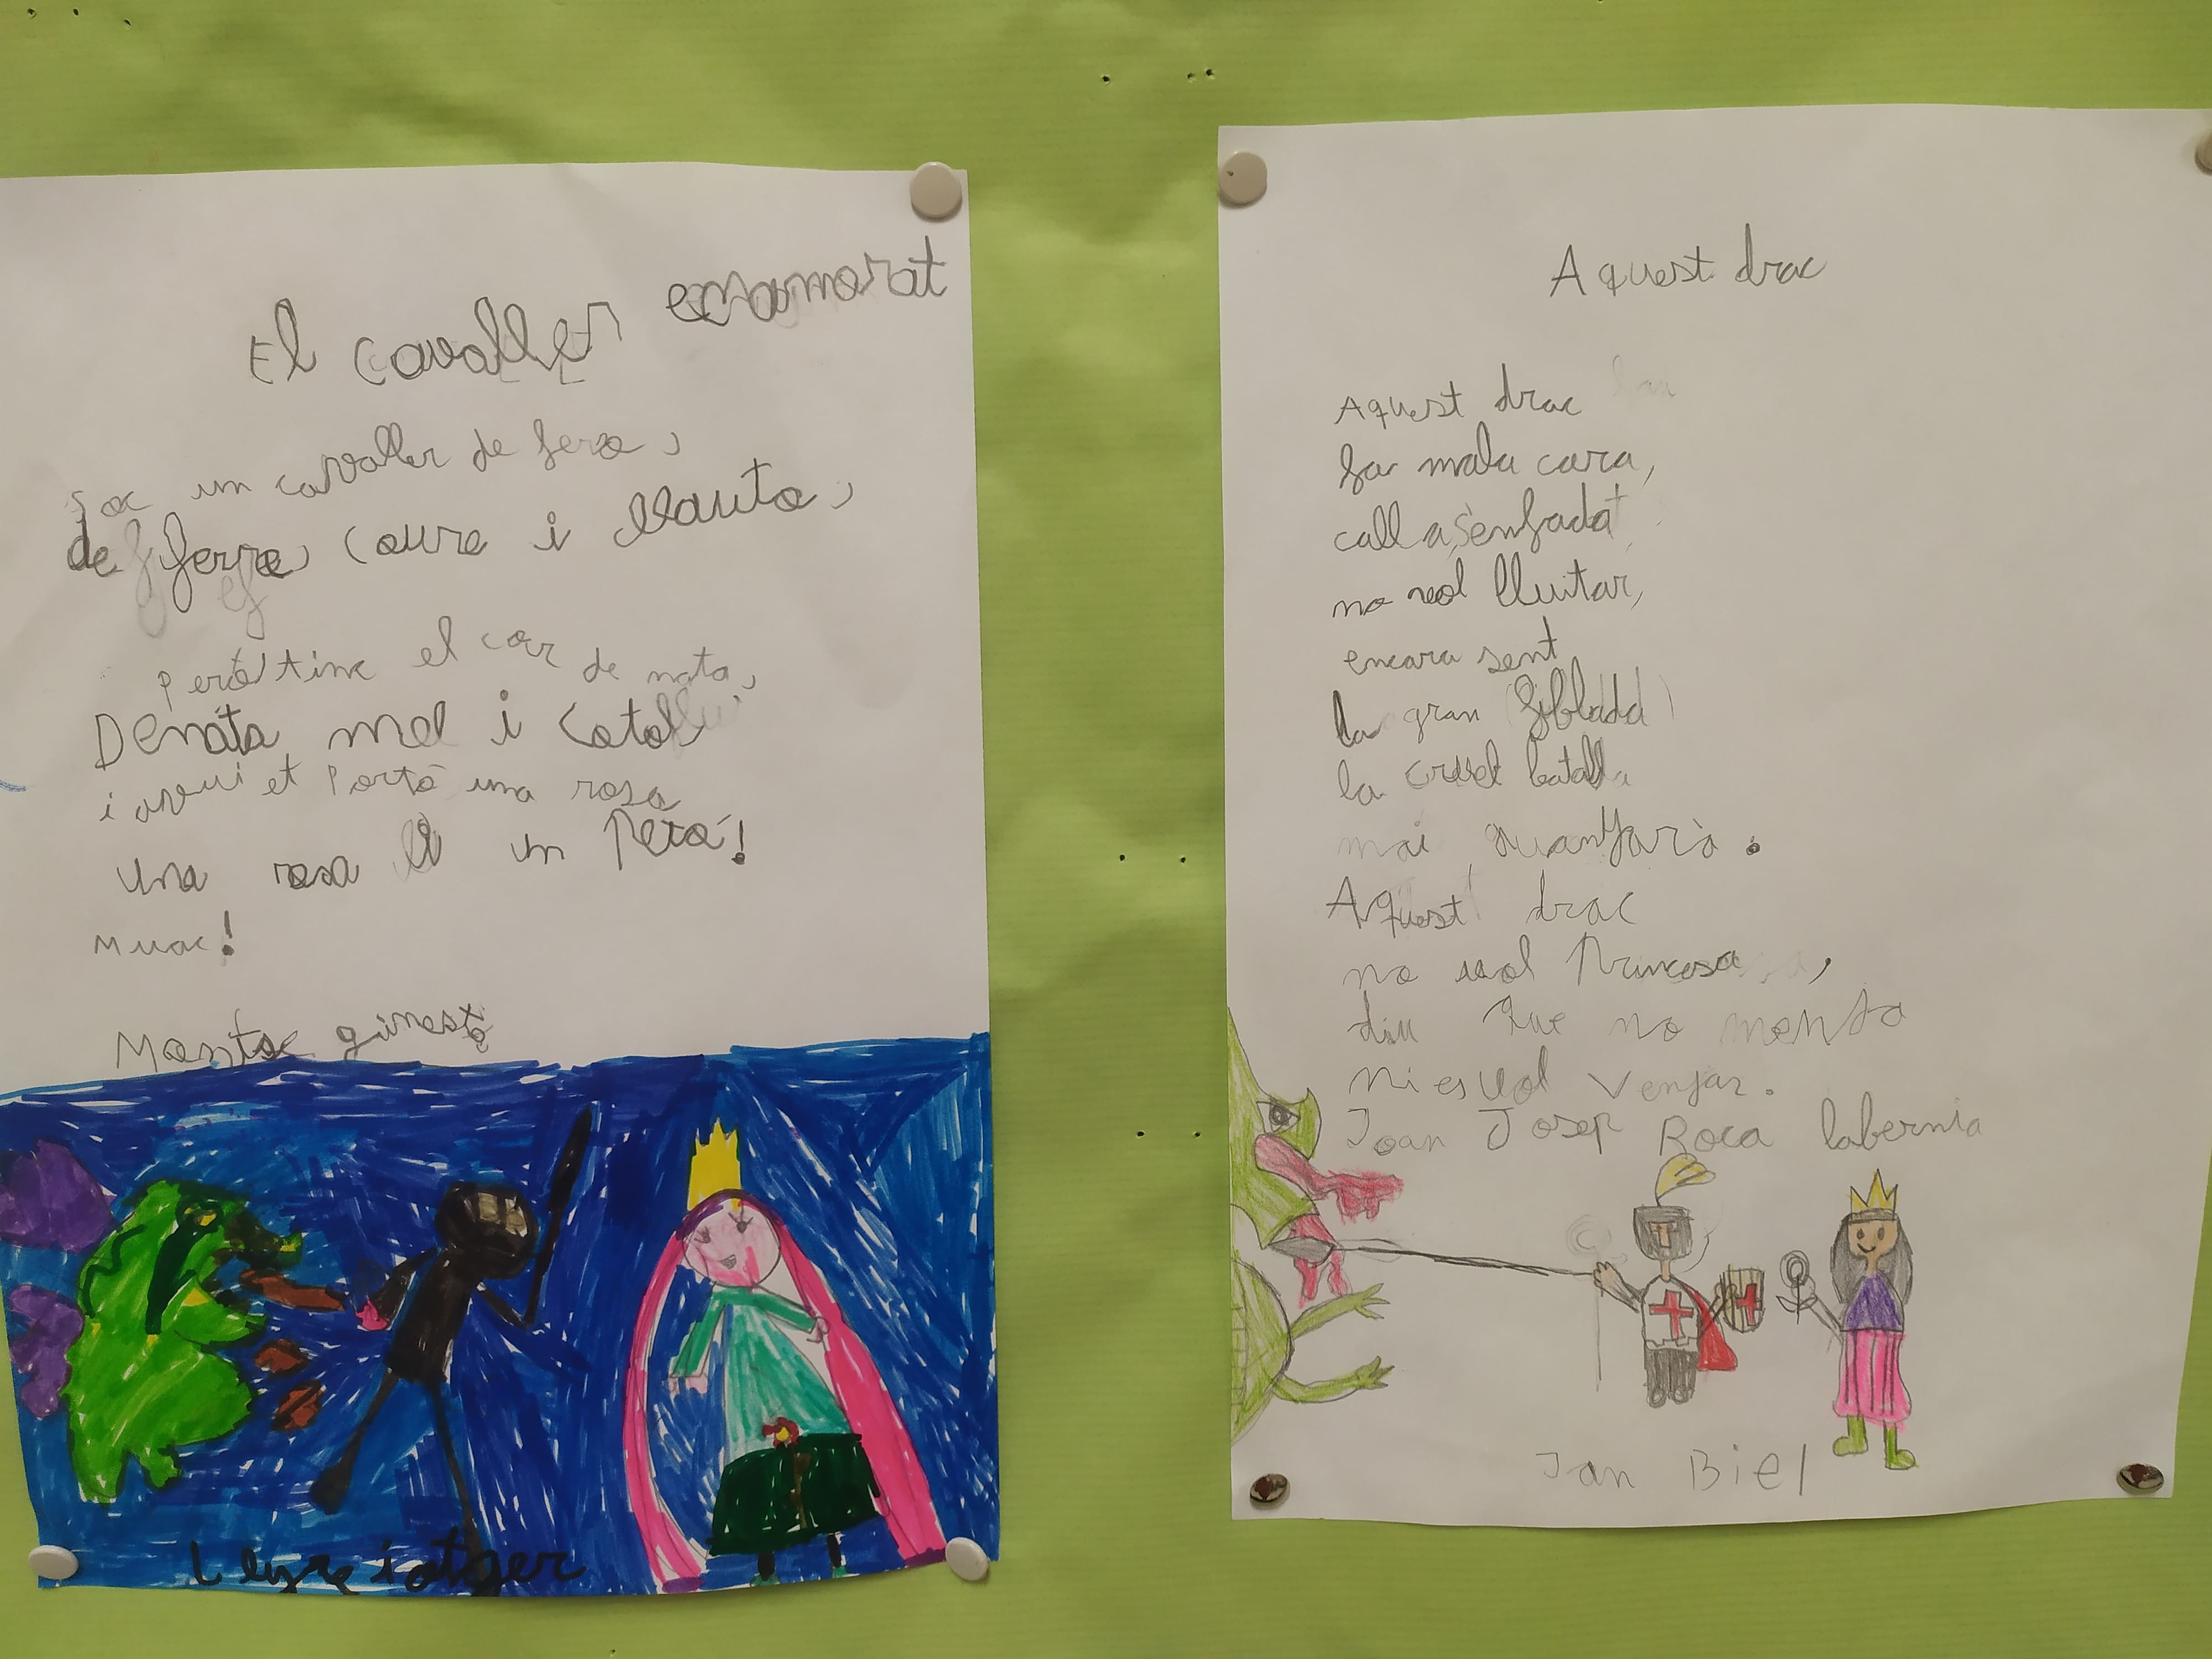 El cavaller enamorat
Soc un cavaller de ferro,
de ferro, coure i llauto,
però tinc el cor de nata,
De nata mel i
i avui et porto una rosa
una rosa i un Petó!
Muac!
ginestà
Aquest drac
Aquest drac
fa mala cara,
call a, s'enfada
no vol lluitar,
encara sent
la gran fiblada
la cruel batalla
mai guanyarà.
Aquest drac
no vol Princesa,
diu que no menja
ni es vol venjar.
Joan Josep Roca labernia
Jan Biel